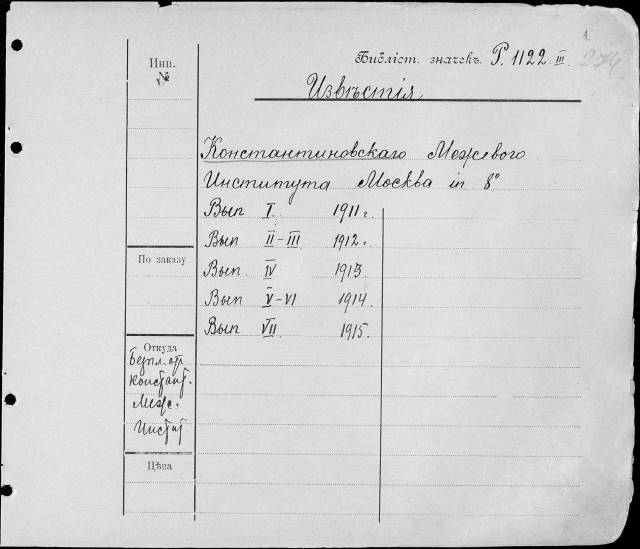 1.
274
Инв.
№
Библіот. значекъ P. 1122 III
Извѣстія
Константиновскаго Межевого
Института Москва in 8º
Вып I. 1911 г.
Вып II-III 1912.
По заказу
Вып. IV 1913
Вып. V-VI 1914.
Вып VII 1915.
Откуда
Безпл. отъ
Констант.
Меж.
Инстит
Цѣна